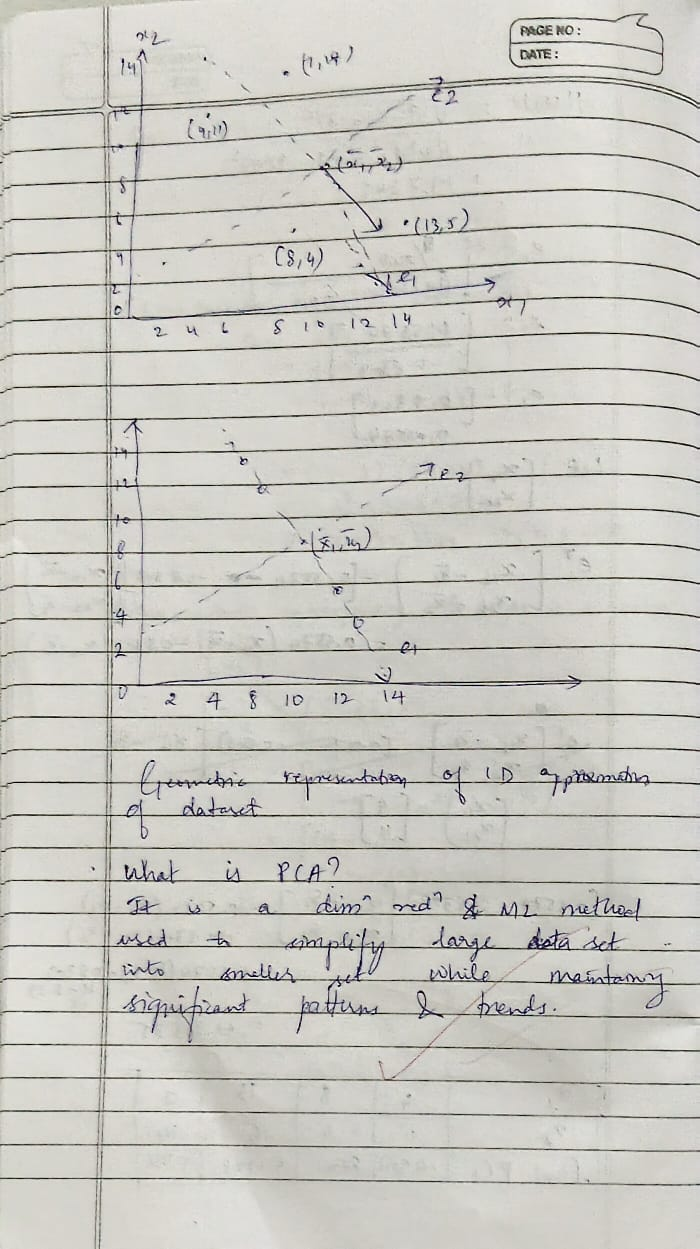 PAGE NO :
DATE :
x2
14
(7,14)
12
e2
(4,11)
10
(x̄1, x̄2)
8
6
(13,5)
4
(8,4)
2
e1
0
x1
2 4 6 8 10 12 14
14
e2
12
10
8
(x̄1, x̄2)
6
4
2
e1
0
2 4 8 10 12 14
Geometric representation of 1D approximation
of dataset
What is PCA?
It is a dimn redn & ML method
used to simplify large data set
into smaller set while maintaing
significant patterns & trends.